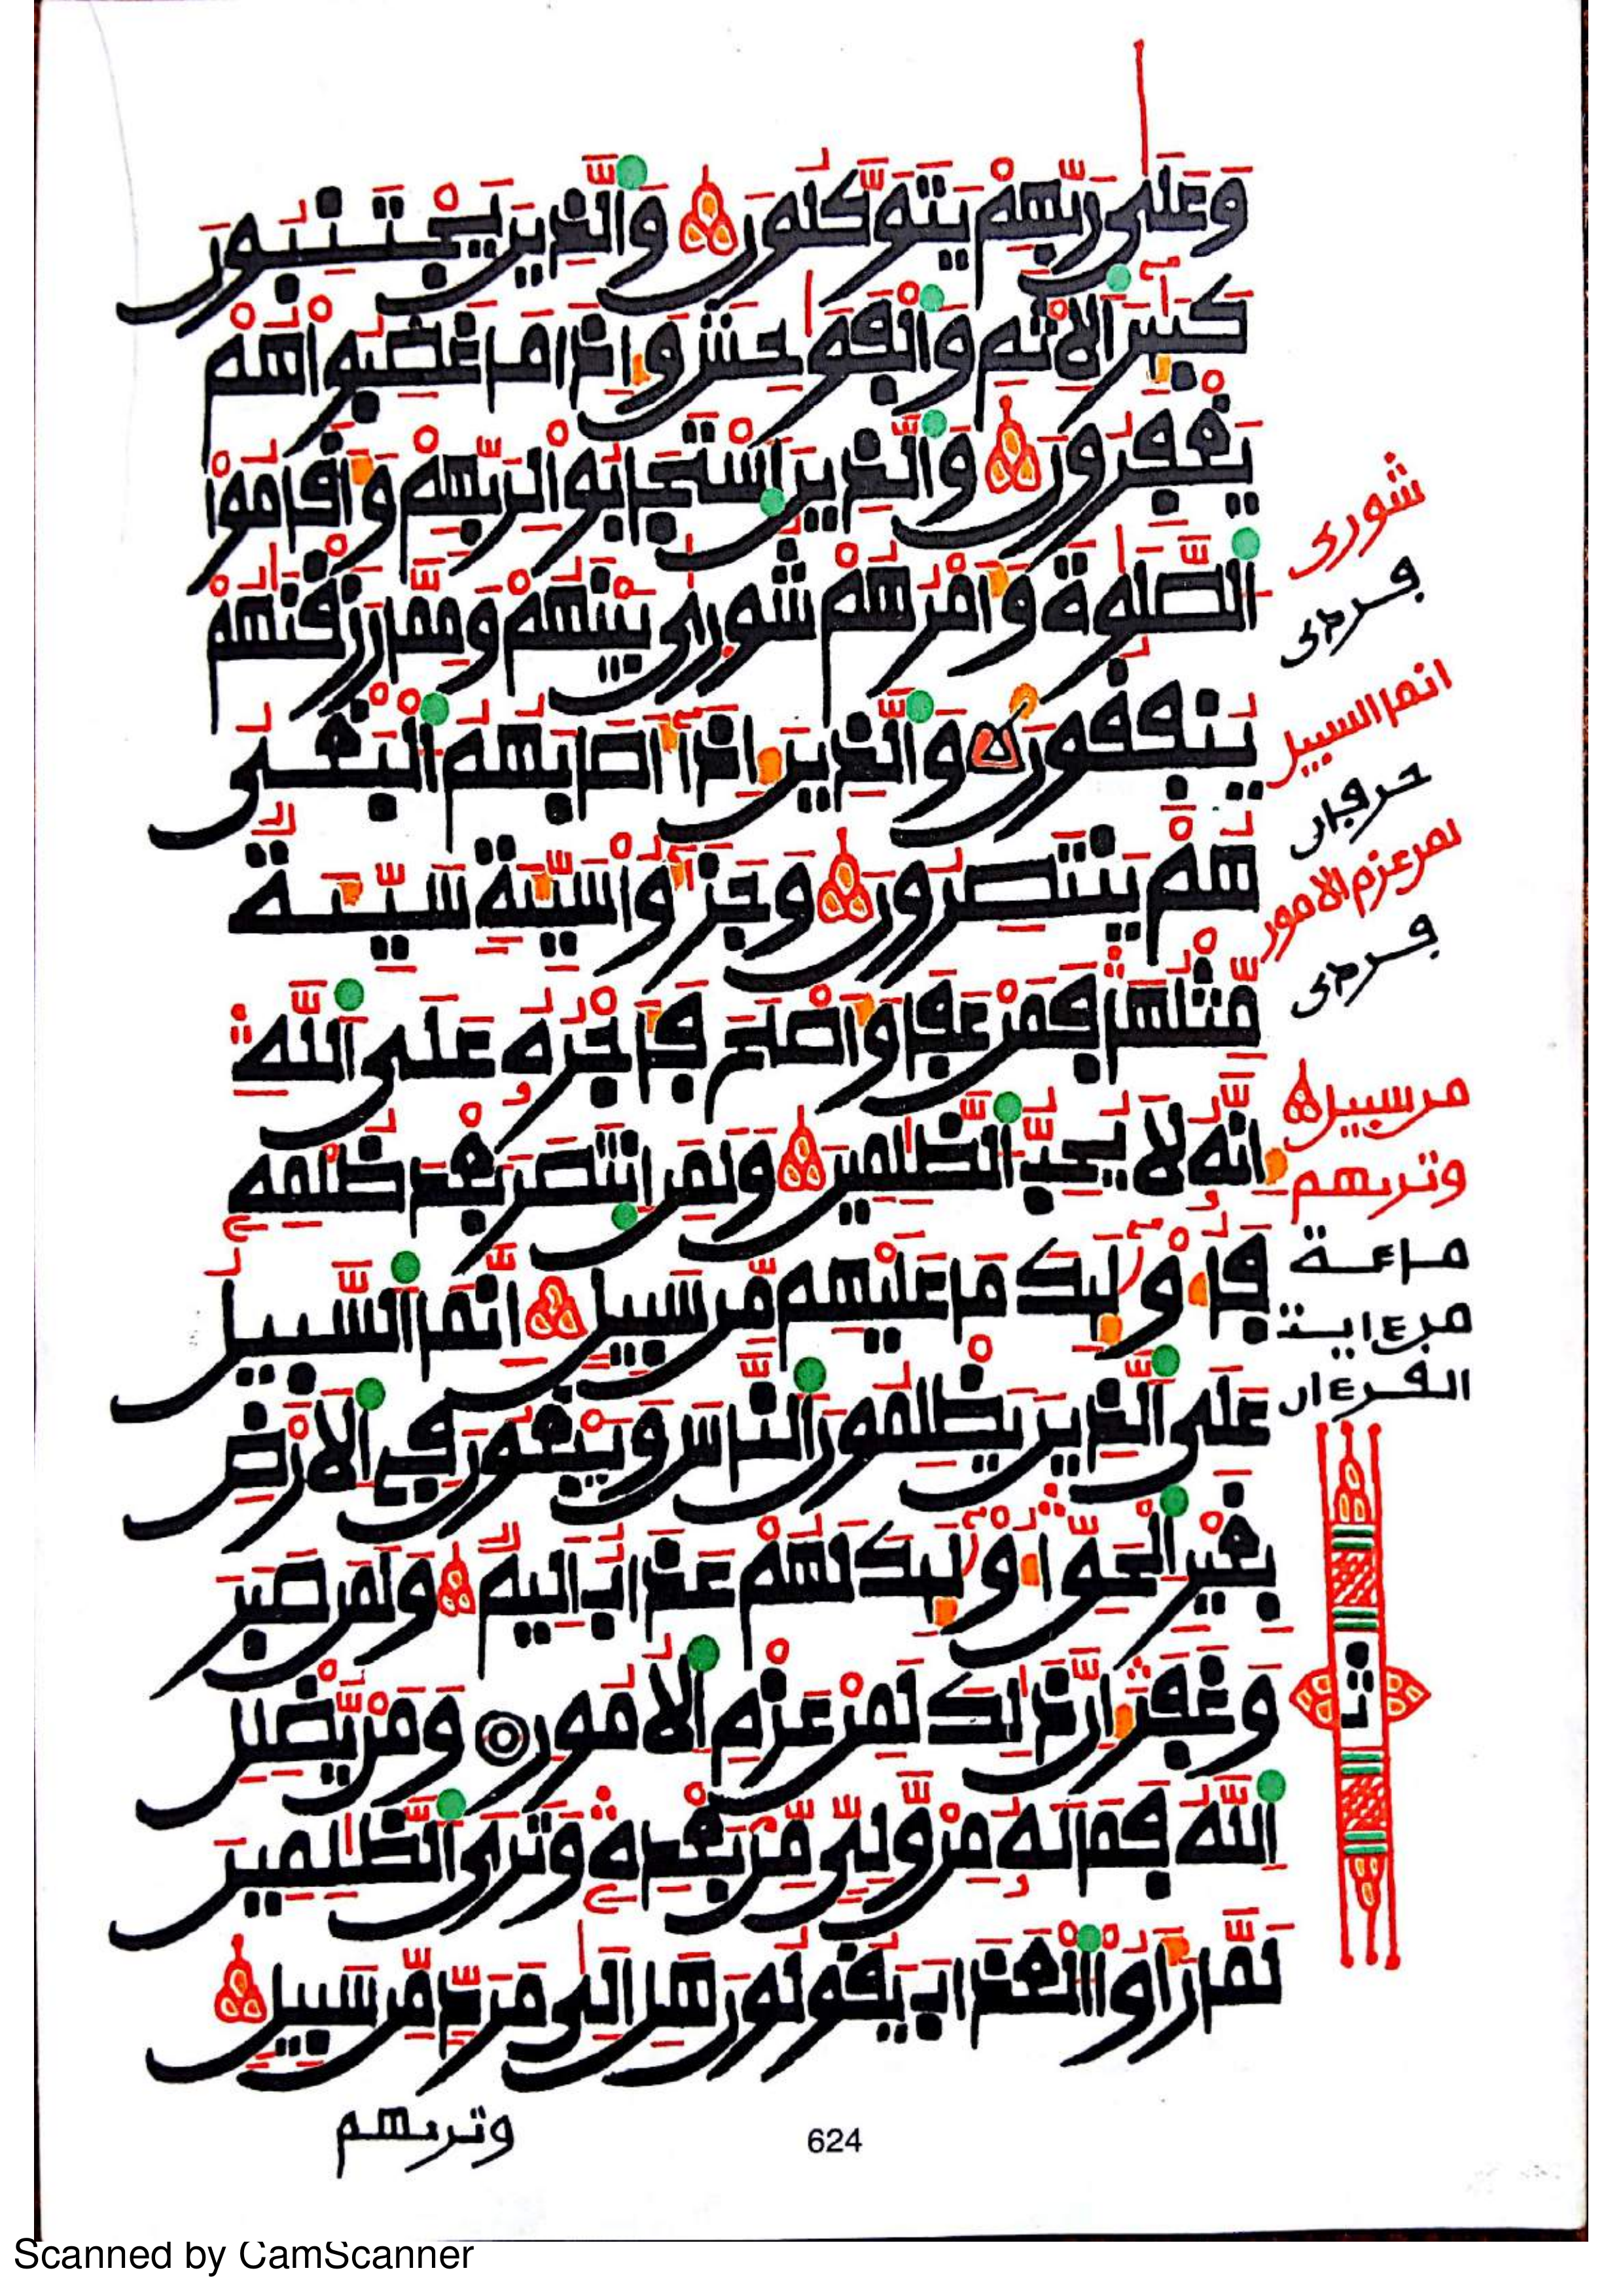 وَعَلَىٰ رَبِّهِمْ يَتَوَكَّلُونَ وَالَّذِينَ يَجْتَنِبُونَ
كَبَٰٓئِرَ الْإِثْمِ وَالْفَوَٰحِشَ وَإِذَا مَا غَضِبُوا هُمْ
يَغْفِرُونَ وَالَّذِينَ اسْتَجَابُوا لِرَبِّهِمْ وَأَقَامُوا
الصَّلَوٰةَ وَأَمْرُهُمْ شُورَىٰ بَيْنَهُمْ وَمِمَّا رَزَقْنَٰهُمْ
يُنفِقُونَ وَالَّذِينَ إِذَا أَصَابَهُمُ الْبَغْىُ
هُمْ يَنتَصِرُونَ وَجَزَٰٓؤُا سَيِّئَةٍ سَيِّئَةٌ
مِّثْلُهَا فَمَنْ عَفَا وَأَصْلَحَ فَأَجْرُهُ عَلَى اللَّهِ
إِنَّهُ لَا يُحِبُّ الظَّٰلِمِينَ وَلَمَنِ انتَصَرَ بَعْدَ ظُلْمِهِ
فَأُوْلَٰٓئِكَ مَا عَلَيْهِم مِّن سَبِيلٍ إِنَّمَا السَّبِيلُ
عَلَى الَّذِينَ يَظْلِمُونَ النَّاسَ وَيَبْغُونَ فِي الْأَرْضِ
بِغَيْرِ الْحَقِّ أُوْلَٰٓئِكَ لَهُمْ عَذَابٌ أَلِيمٌ وَلَمَن صَبَرَ
وَغَفَرَ إِنَّ ذَٰلِكَ لَمِنْ عَزْمِ الْأُمُورِ وَمَنْ يُّضْلِلِ
اللَّهُ فَمَا لَهُ مِنْ وَّلِيٍّ مِّن بَعْدِهِ وَتَرَى الظَّٰلِمِينَ
لَمَّا رَأَوُا الْعَذَابَ يَقُولُونَ هَلْ إِلَىٰ مَرَدٍّ مِّن سَبِيلٍ
شورى
انما السبيل
لمن عزم الامور
من سبيل
وترىهم
ماعة
من ءاية
القرءان
ث
وترىهم
624
Scanned by CamScanner